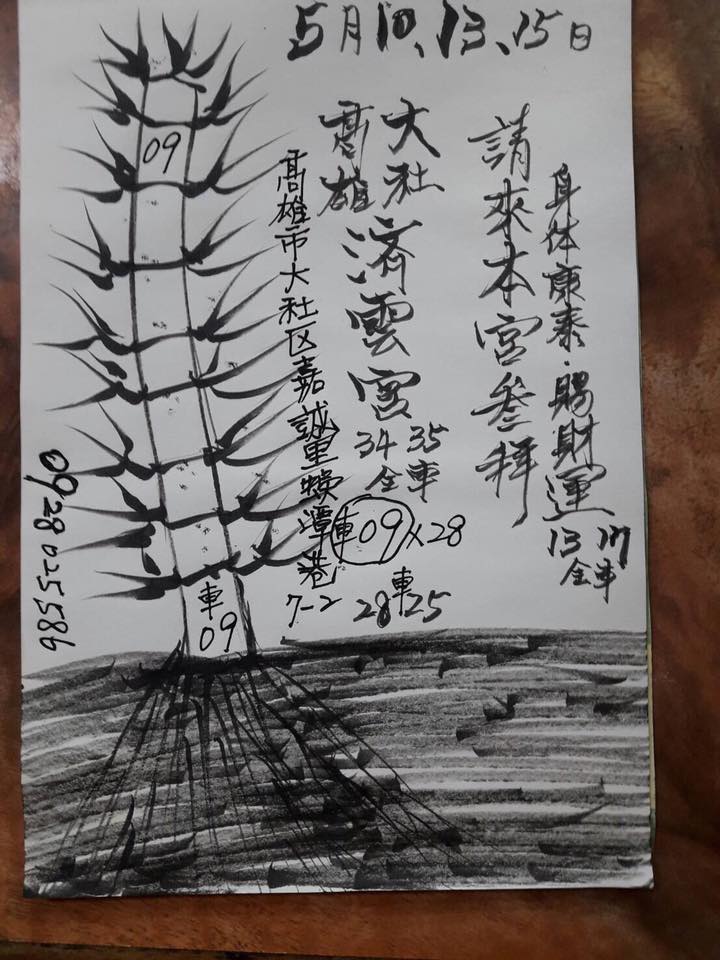 5月10、13、15日
身体康泰．賜財運
13 17
全車
請來本宮叁拜
大社
高雄
濟雲宮
34 35
全車
車09x28
車
28 25
高雄市大社区嘉誠里蜈潭巷
7-2
09
車
09
0928025586